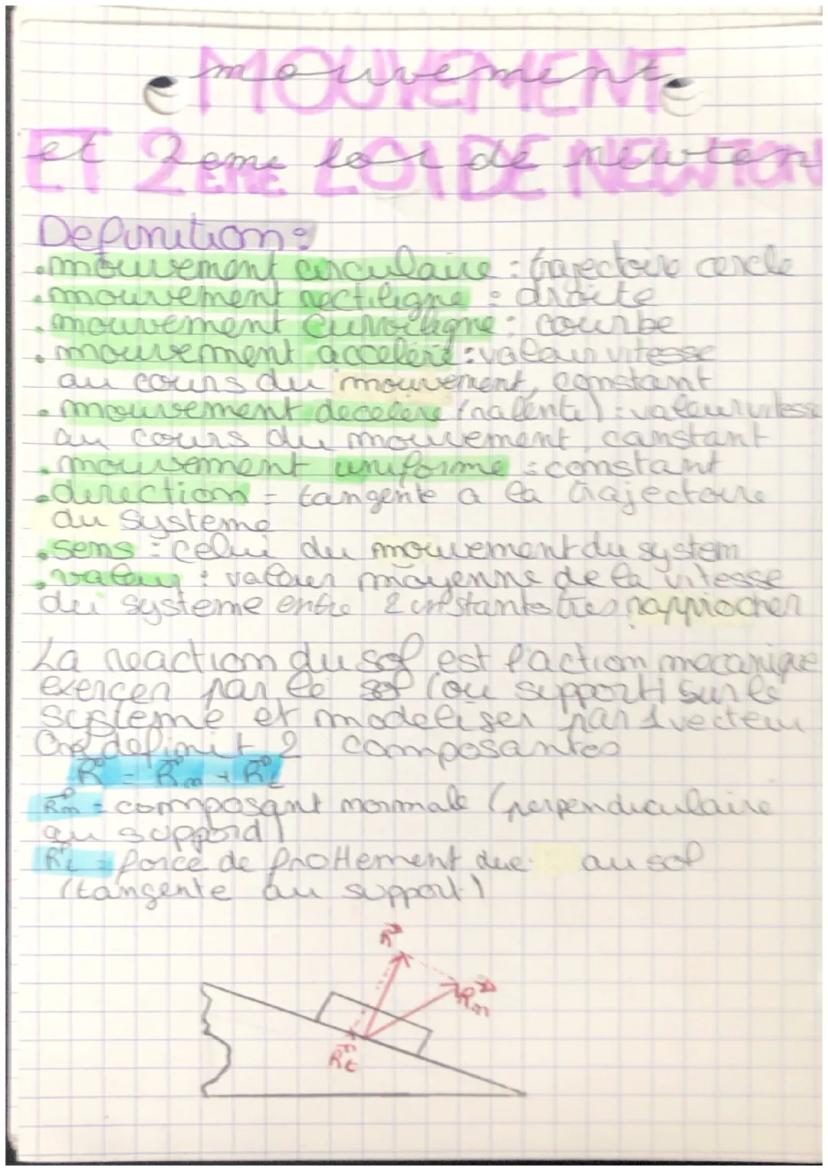 mouvement
MOUVEMENT
et 2eme loi de newton
ET 2EME LOI DE NEWTON
Definition :
• mouvement circulaire : trajectoire cercle
• mouvement rectiligne : droite
• mouvement curviligne : courbe
• mouvement acceleré : valeur vitesse
au cours du mouvement, constant
• mouvement decelere (ralenti) : valeur vitesse
au cours du mouvement, constant
• mouvement uniforme : constant
• direction = tangente a la trajectoire
du systeme
• sens : celui du mouvement du system
• valeur : valeur moyenne de la vitesse
du systeme entre 2 instants tres rapprocher
La reaction du sol est l'action mecanique
exercer par le sol (ou support) sur le
systeme et modeliser par 1 vecteur
On definit 2 composantes
R = Rn + Rt
Rn = composant normale (perpendiculaire
au suppord)
Rt = force de frottement due au sol
(tangente au support)
R
Rn
Rt